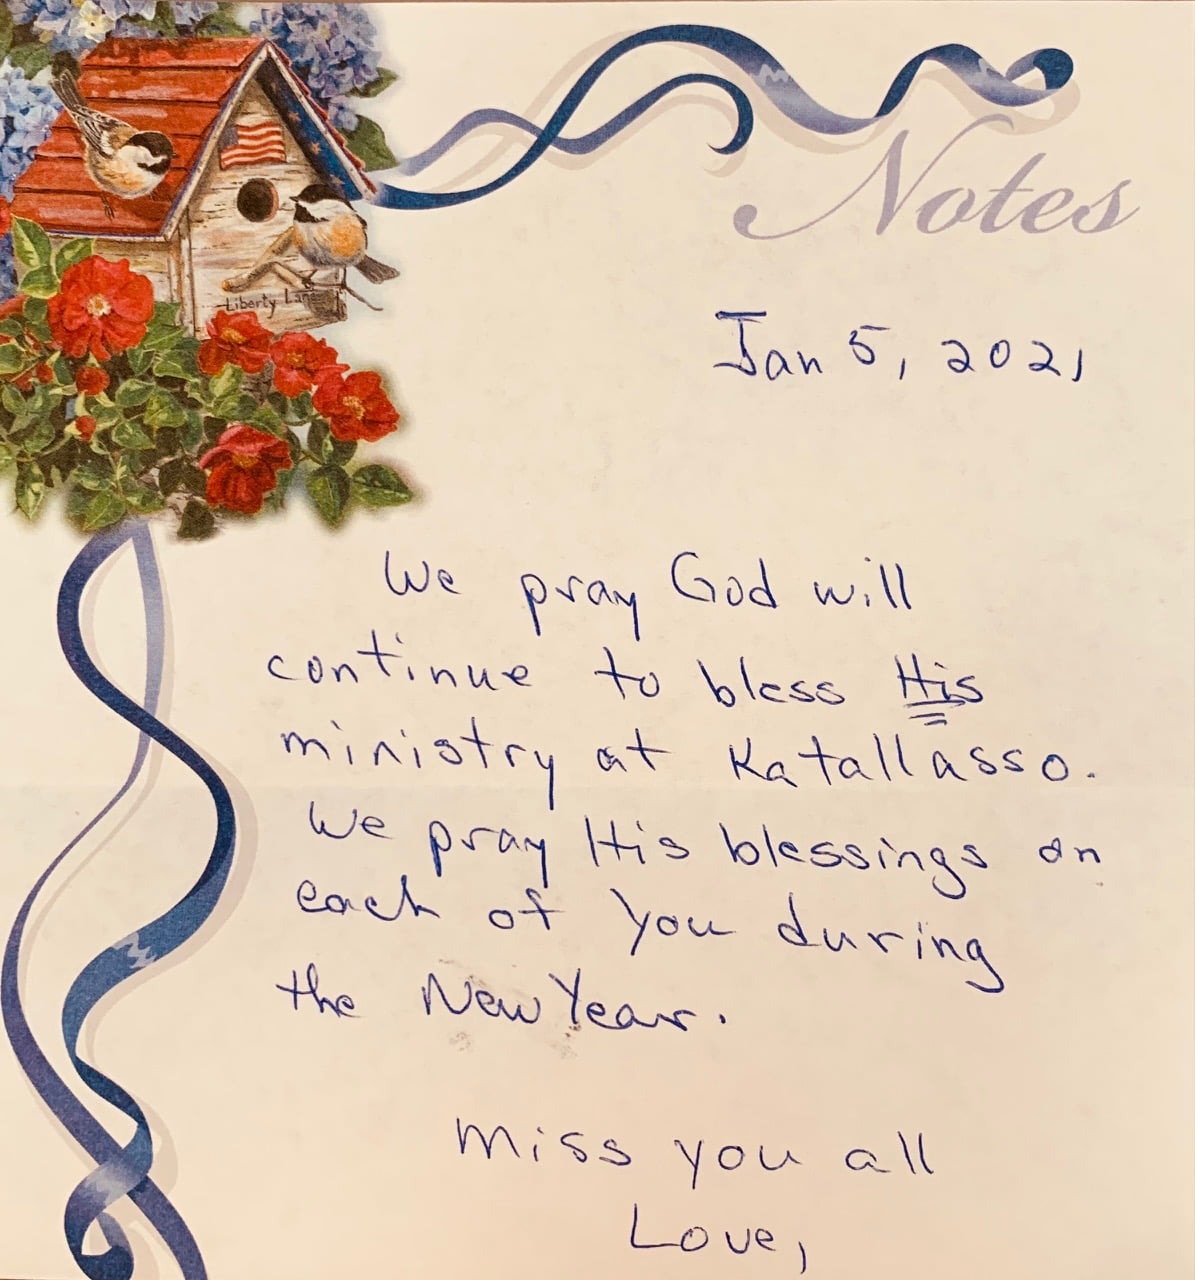 Notes
Liberty Lane
Jan 5, 2021
We pray God will
continue to bless His
ministry at Katallasso.
We pray His blessings on
each of you during
the New Year.
Miss you all
Love,